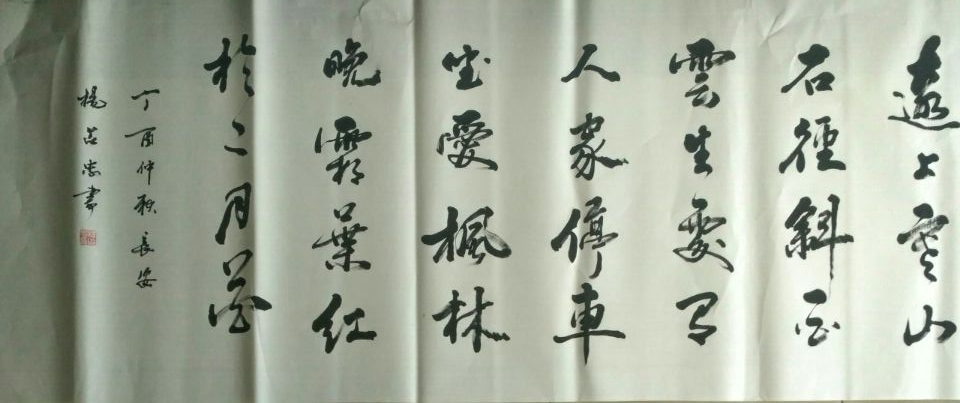 遠上寒山
石徑斜白
雲生處有
人家停車
坐愛楓林
晚霜葉紅
於二月花
丁酉仲秋長安
楊占忠書